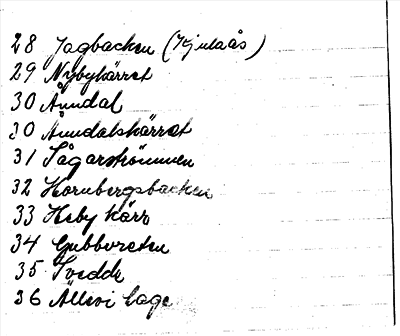 28 Jagbacken (Kjulaås)
29 Nybykärret
30 Åundal
30 Åundalskärret
31 Sågarströmmen
32 Hornbergsbacken
33 Heby kärr
34 Gubboreten
35 Svedde
36 Ällevi hage